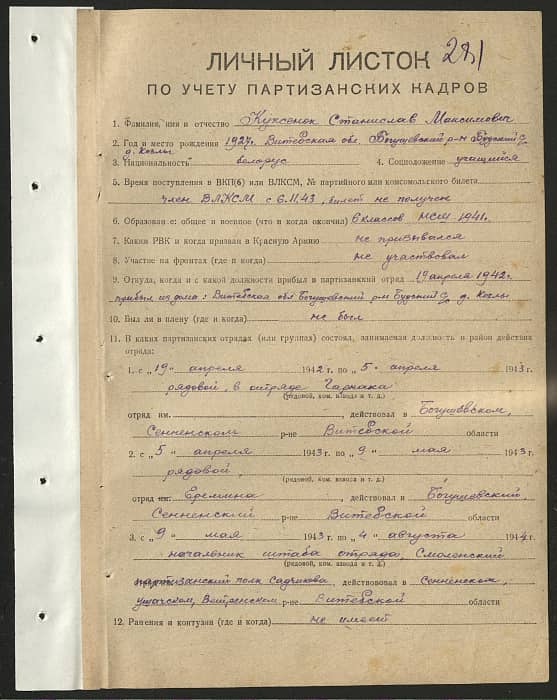 ЛИЧНЫЙ ЛИСТОК 281
ПО УЧЕТУ ПАРТИЗАНСКИХ КАДРОВ
1. Фамилия, имя и отчество Куксенок Станислав Максимович
2. Год и место рождения 1927г. Витебская обл. Богушевский р-н Будский с/с
д. Коклы
3. Национальность белорус 4. Соцположение учащийся
5. Время поступления в ВКП(б) или ВЛКСМ, № партийного или комсомольского билета
член ВЛКСМ с 6.11.43, билет не получен
6. Образование: общее и военное (что и когда окончил) 6 классов НСШ 1941г.
7. Каким РВК и когда призван в Красную Армию не призывался
8. Участие на фронтах (где и когда) не участвовал
9. Откуда, когда и с какой должности прибыл в партизанский отряд 19 апреля 1942г.
прибыл из дома: Витебская обл Богушевский р-н Будский с/с д. Коклы
10. Был ли в плену (где и когда) не был
11. В каких партизанских отрядах (или группах) состоял, занимаемая должность и район действия
отряда:
1. с "19" апреля 1942 г. по "5" апреля 1943 г.
рядовой, в отряде Гарнака
(рядовой, ком. взвода и т. д.)
отряд им. , действовал в Богушевском,
Сенненском р-не Витебской области
2. с "5" апреля 1943 г. по "9" мая 1943 г.
рядовой,
(рядовой, ком. взвода и т. д.)
отряд им. Еремина , действовал в Богушевский
Сенненский р-не Витебской области
3. с "9" мая 1943 г. по "4" августа 1944 г.
начальник штаба отряда, Смоленский
(рядовой, ком. взвода и т. д.)
партизанский полк Садчикова действовал в Сенненском,
Ушачском, р-не Витебской области
12. Ранения и контузии (где и когда) не имеет